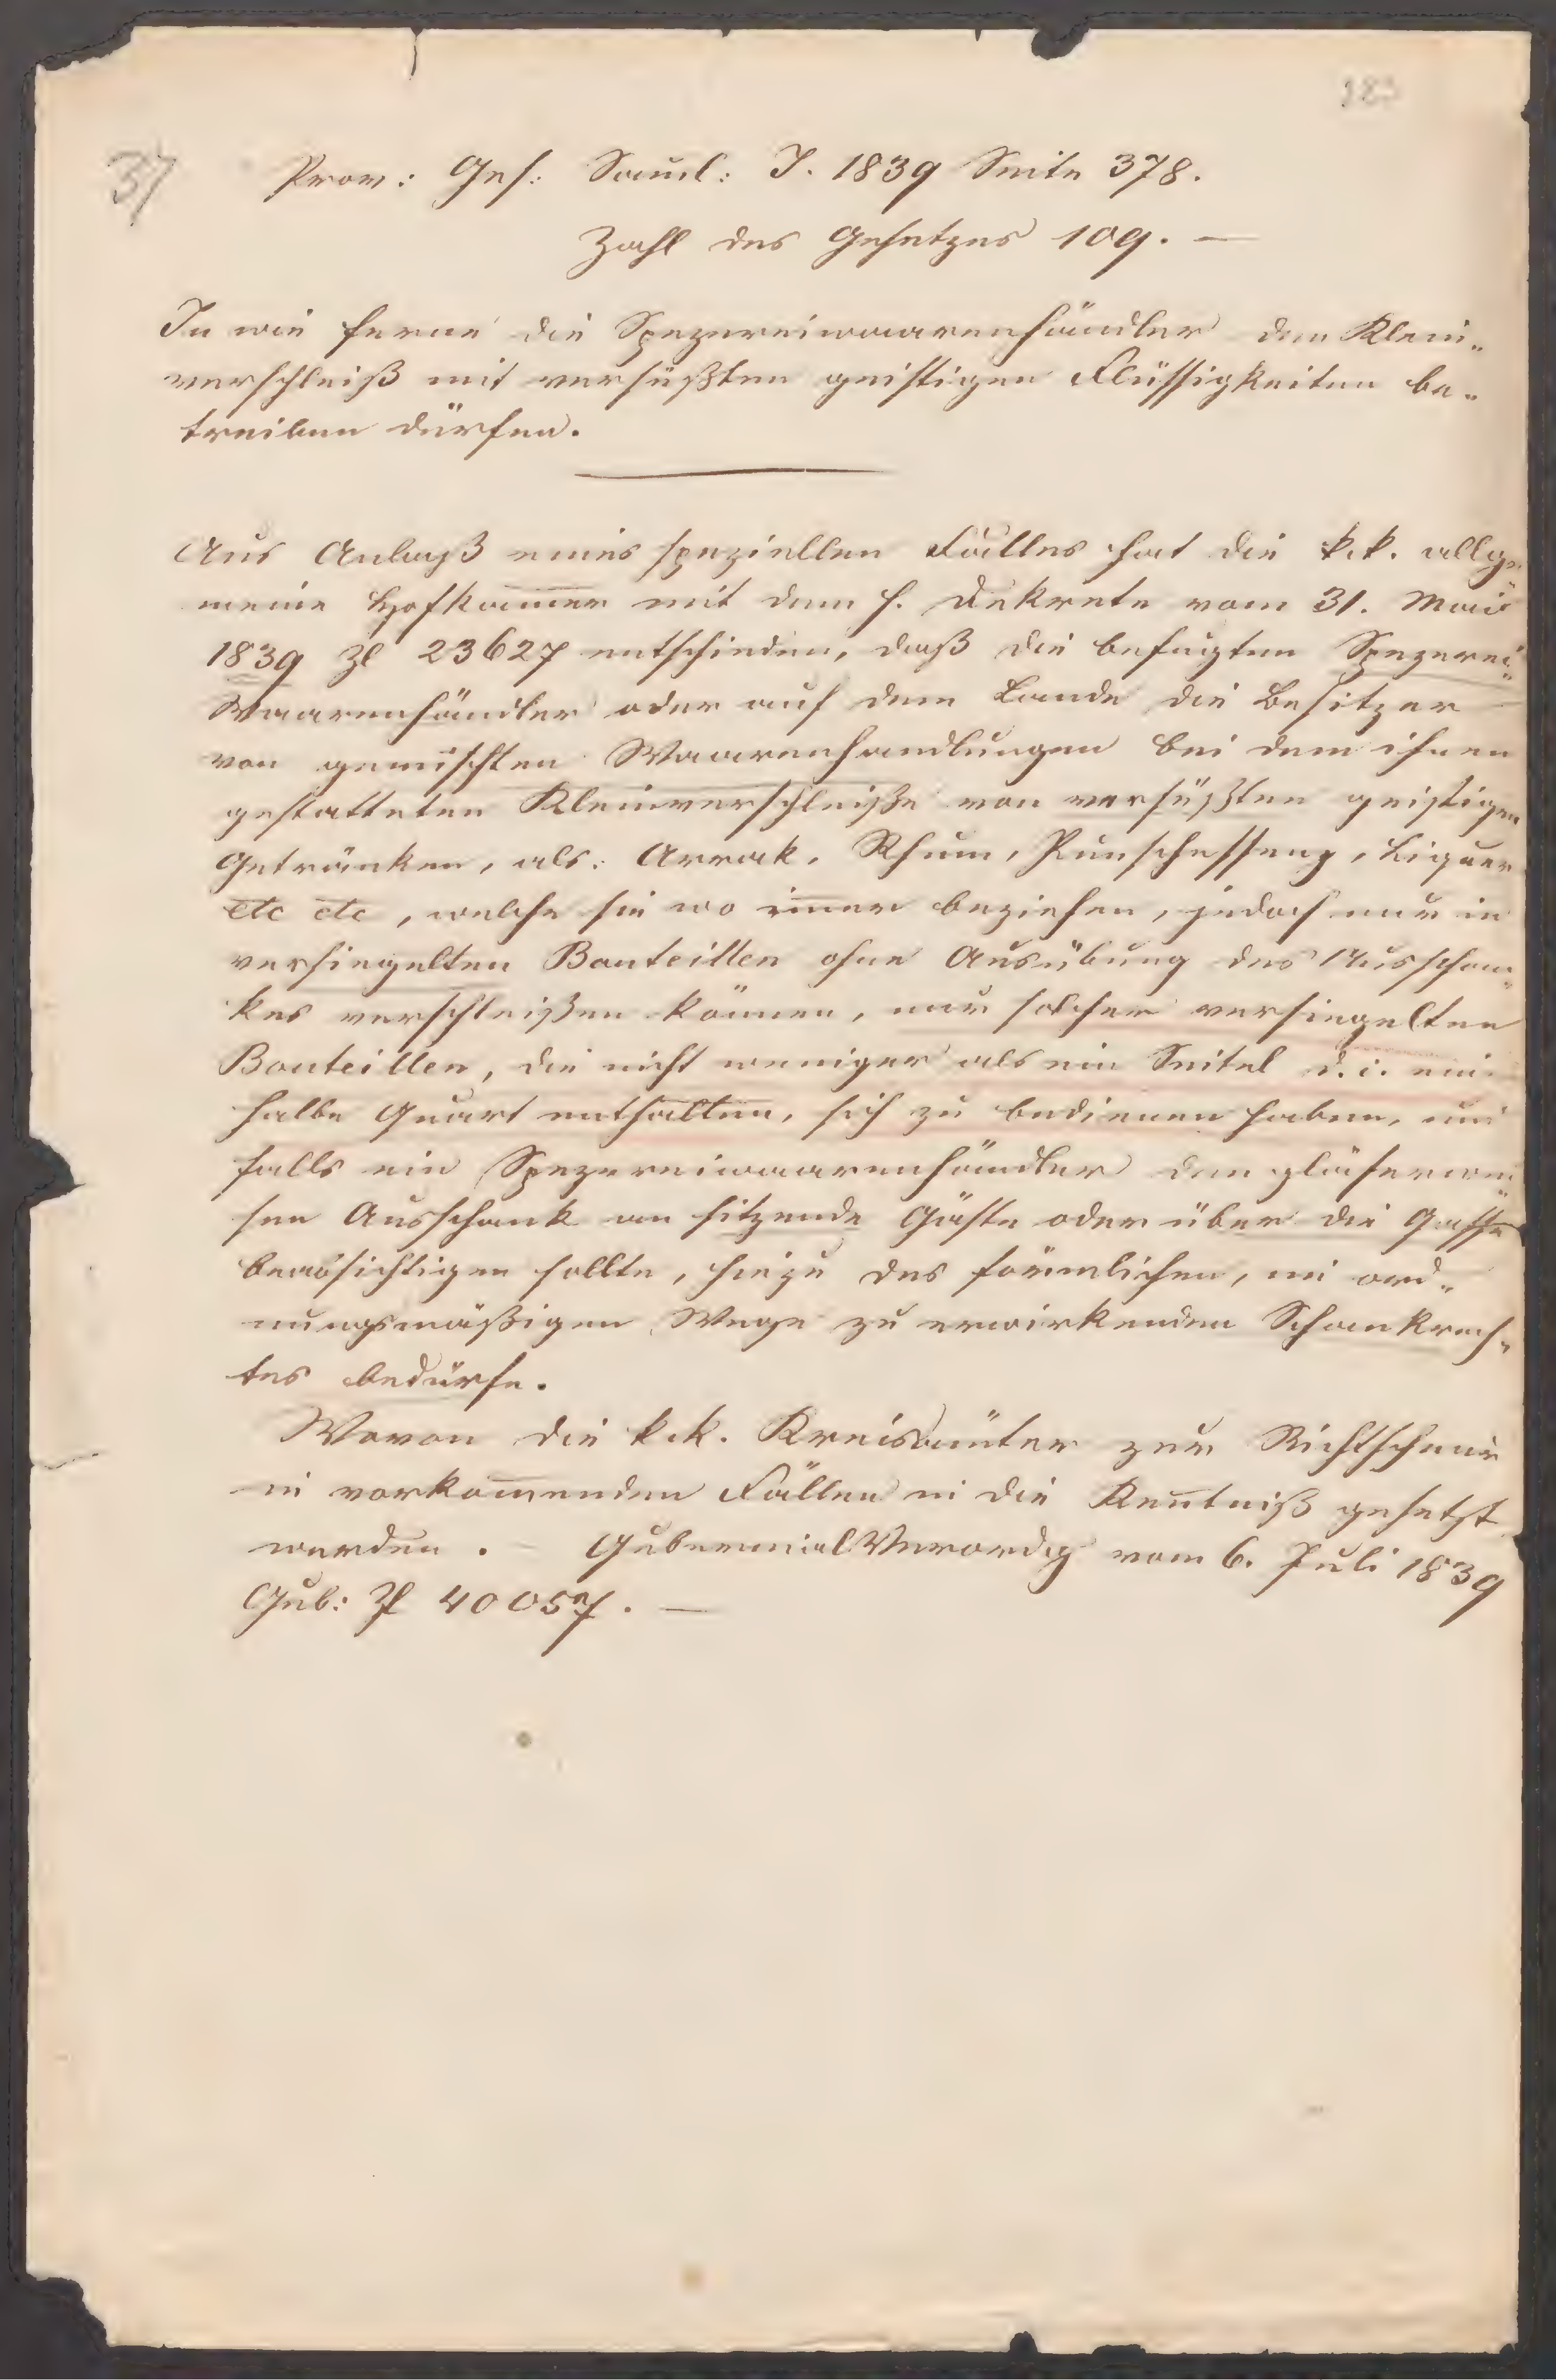 37
Prov: Ges: Saml: J. 1839 Seite 378.
Zahl des Gesetzes 109. —
In wie ferne die Spezereiwaarenhändler den Klein„
verschleiß mit versüßten geistigen Flüssigkeiten be„
treiben dürfen.
Aus Anlaß eines speziellen Falles hat die k. k. allge„
meine Hofkam̄er mit dem h. Dekrete vom 31. Mai
1839 Zl 23627 entschieden, daß die befugten Spezerei„
Waarenhändler oder auf dem Lande die Besitzer
von gemischten Waarenhandlungen bei dem ihnen
gestatteten Kleinverschleiße von versüßten geistigen
Getränken, als: Arrak, Rhum, Punschessenz, Liquer
etc etc, welche sie wo im̄er beziehen, jedoch nur in
versiegelten Bouteillen ohne Ausübung des Ausschan„
kes verschleißen können, nur solcher versiegelten
Bouteillen, die nicht weniger als ein Seitel d. i. ein
halbe Quart enthalten, sich zu bedienen haben, und
falls ein Spezereiwaarenhändler den gläserwei„
sen Ausschank an sitzende Gäste oder über die Gasse
beabsichtigen sollte, hiezu des förmlichen, im ord„
nungsmäßigen Wege zu erwirkenden Schankrech„
tes bedürfe.
Wovon die k. k. Kreisämter zur Richtschnur
in vorkom̄enden Fällen in die Keñtniß gesetzt
werden. — GubernialVerordg vom 6. Juli 1839
Gub: Zl 40057. —